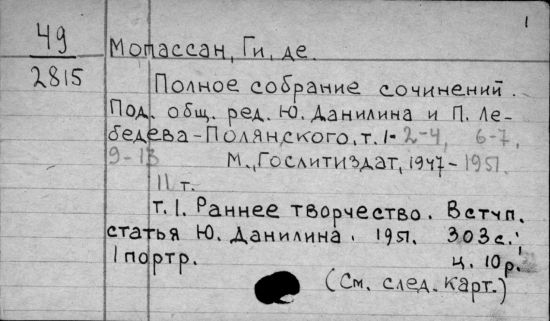 1
49
2815
Мопассан, Ги, де.
Полное собрание сочинений.
Под. общ. ред. Ю. Данилина и П. Ле-
бедева-Полянского, т. 1- 2-4, 6-7,
9-13 М., Гослитиздат, 1947-1951.
11 т.
т. 1. Раннее творчество. Вступ.
статья Ю. Данилина. 1951. 303 с.;
1 портр. ц. 10 р.
(См. след. карт.)